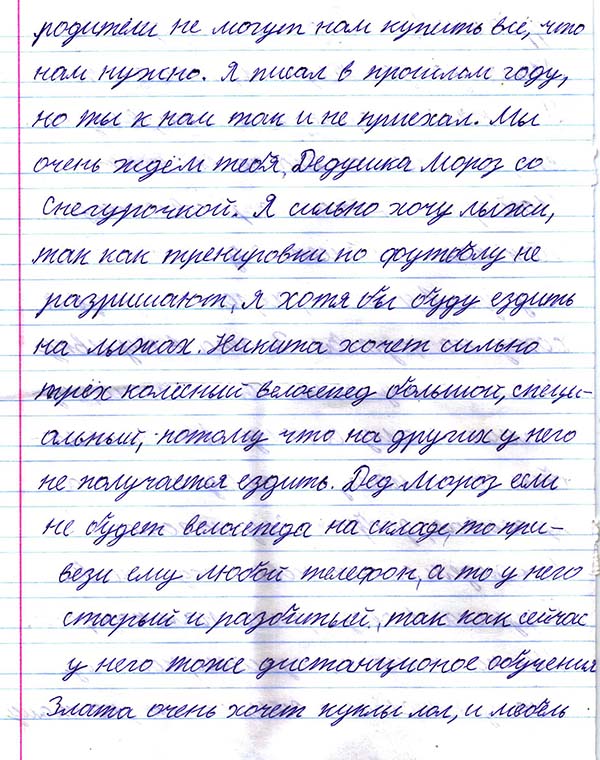 родители не могут нам купить всё, что
нам нужно. Я писал в прошлом году,
но ты к нам так и не приехал. Мы
очень ждём тебя, Дедушка Мороз со
Снегурочкой. Я сильно хочу лыжи,
так как тренировки по футоблу не
разришают, я хотя бы буду ездить
на лыжах. Никита хочет сильно
трёх колёсный велосепед большой, специ-
альный, потому что на других у него
не получается ездить. Дед Мороз если
не будет велоспеда на складе, то при-
вези ему любой телефон, а то у него
старый и разбитый, так как сейчас
у него тоже дистанционое обучения
Злата очень хочет куклы лол, и мебель